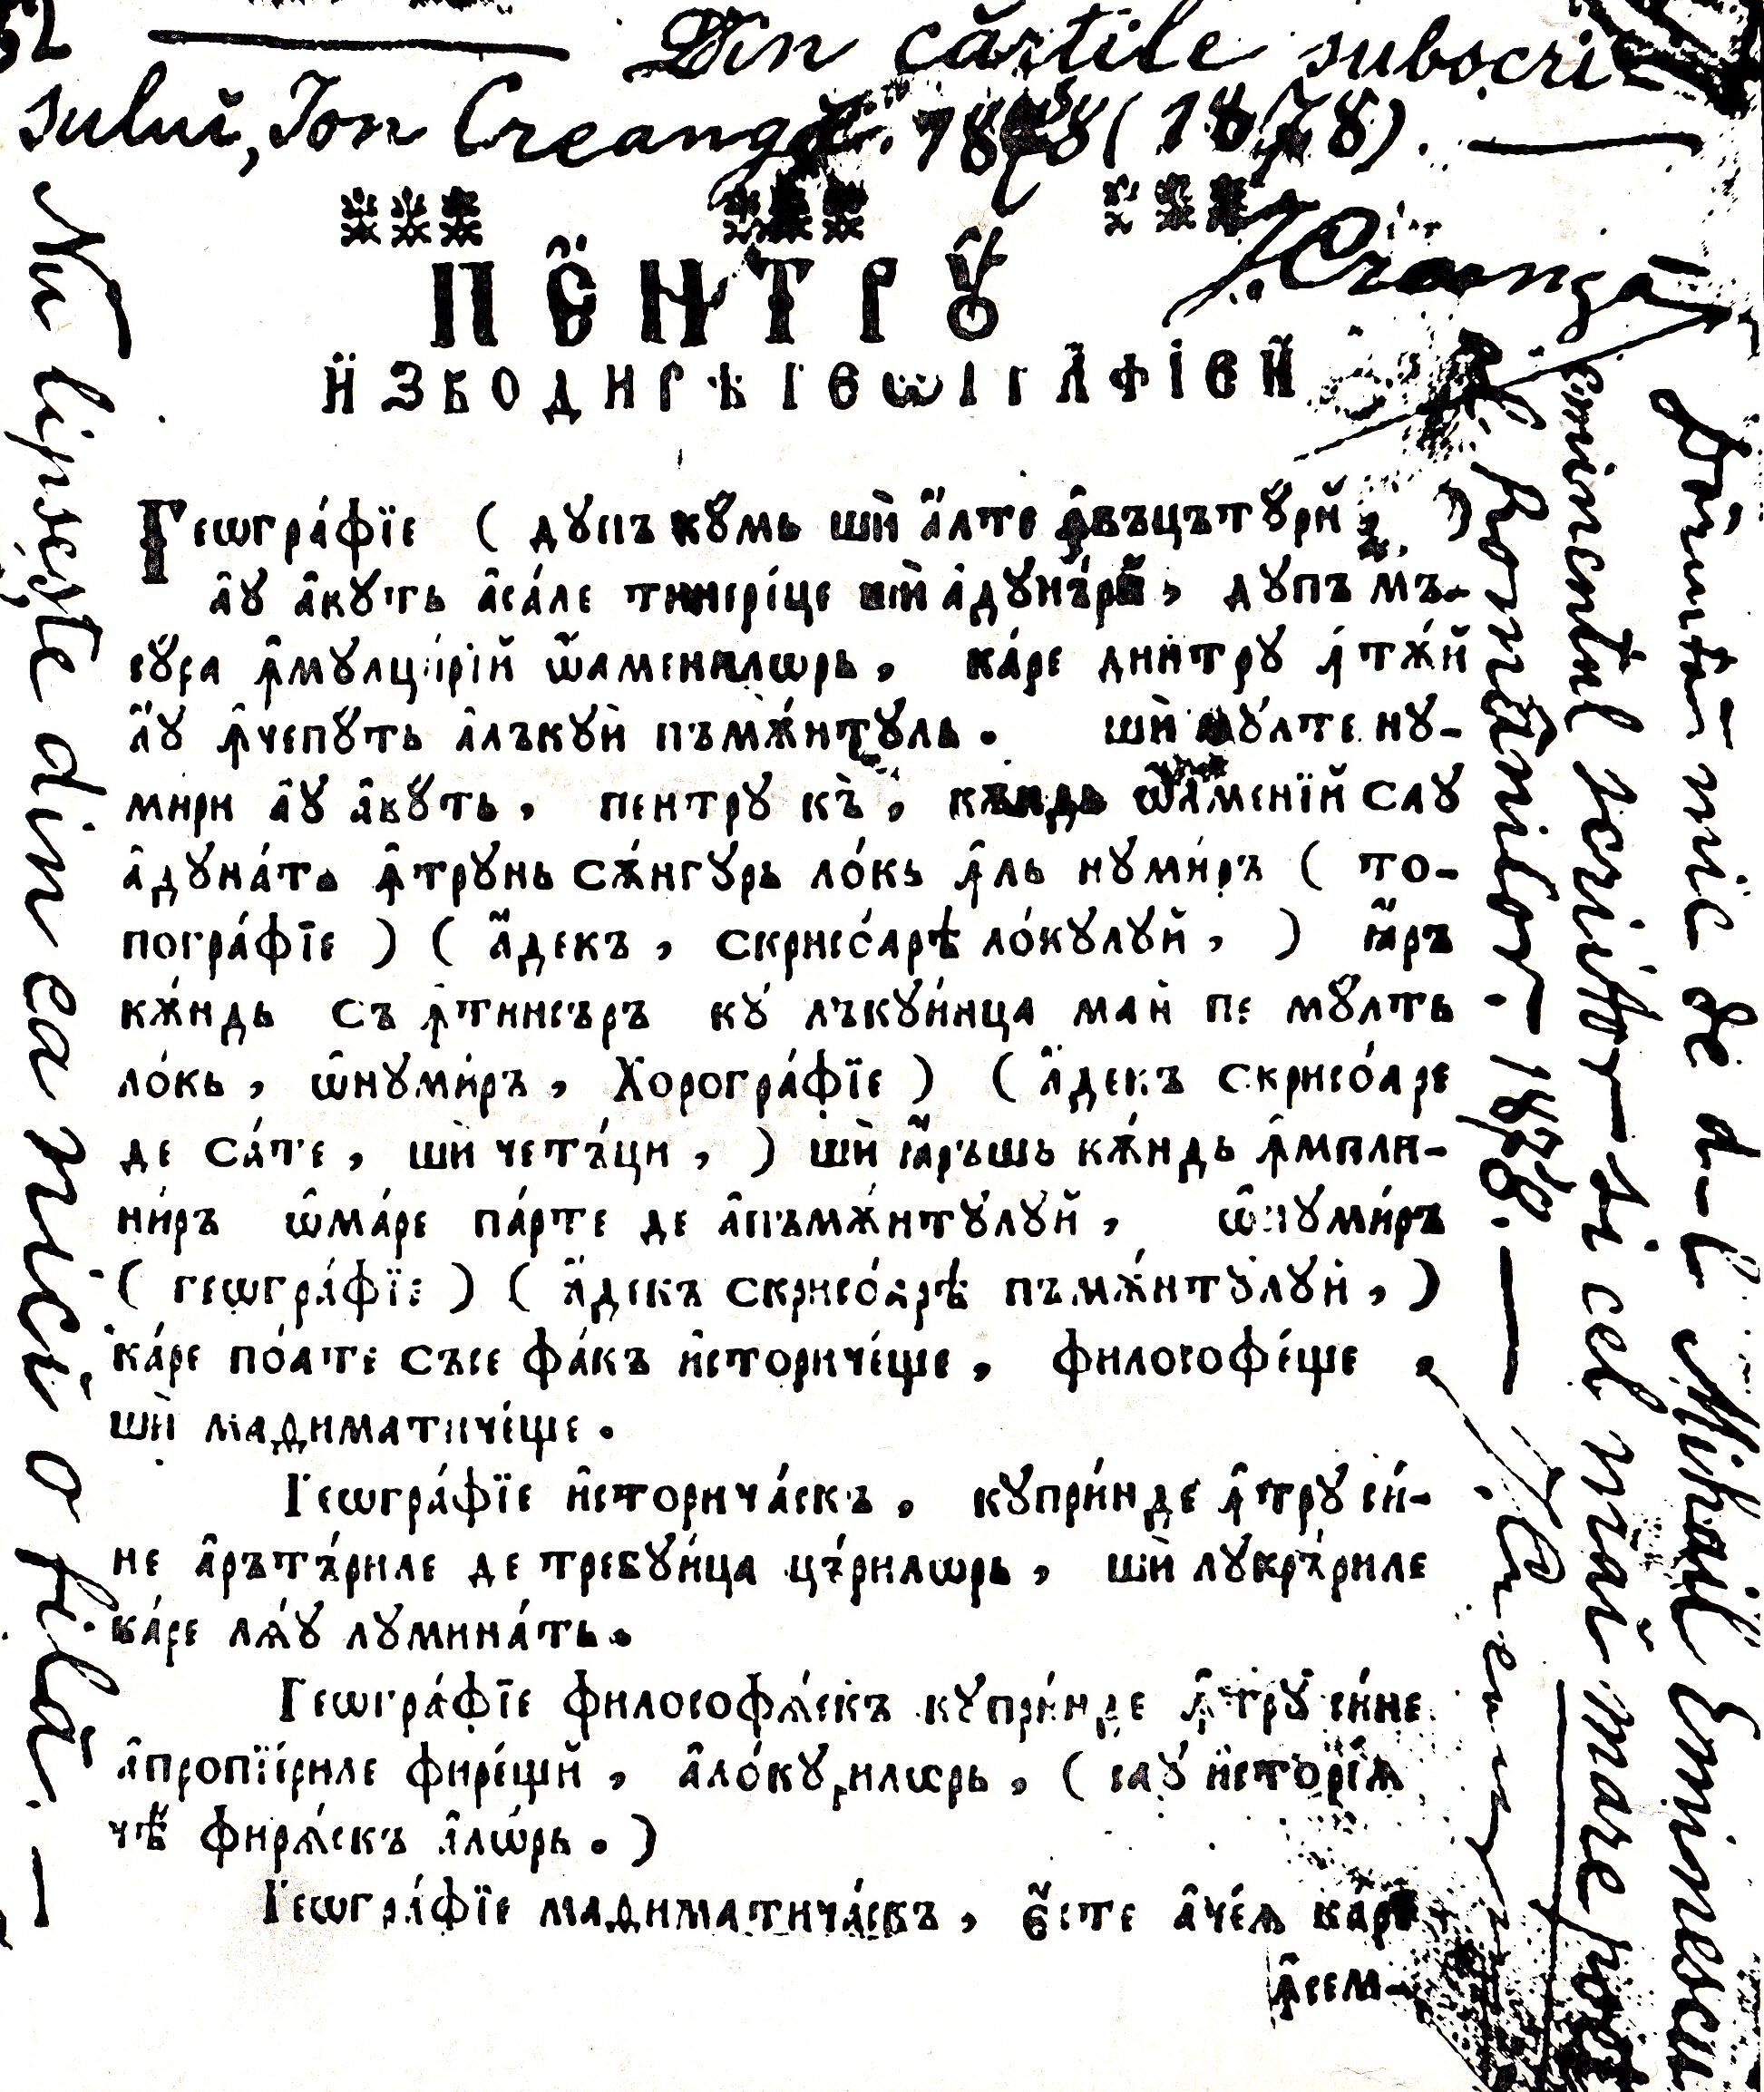 Din cărtile subscri-
sului, Ion Creangă. 1878 (1878). —
I. Creangă
ПЄНТРꙊ
ИЗВОДИРѢ ГЕѠГРАФІЕЙ
Геѡгра́фїе ( дꙋпъ кꙋмь шѝ а҆́лте ꙟ҆въцътꙋ́рй )
а҆ꙋ а҆кꙋ́ть а҆са́ле тинері́це шѝ а҆дꙋнъ́рй, дꙋпъ мъ-
сꙋ́ра ꙟ҆мꙋлци́рїй ѡ҆́аменилѡрь, ка́ре дннтрꙋ ꙟ҆тѫ́й
а҆́ꙋ ꙟ҆чепꙋ́ть а҆лъкꙋѝ пъмѫ́нтꙋль. шѝ мꙋ́лте нꙋ-
мири а҆ꙋ а҆вꙋ́ть, пентрꙋ къ̀, кѫндь ѡ҆́аменїй сaꙋ
а҆дꙋна́ть ꙟ҆трꙋнь сѫ́нгꙋрь ло́кь ꙟ҆ль нꙋми́ръ ( то-
погра́фїе ) ( а҆́декъ, скрисо́арѣ ло́кꙋлꙋй, ) ꙗ҆́ръ
кѫ́ндь съ ꙟ҆тинсъръ кꙋ́ лъкꙋи́нца май пе мꙋ́лть
ло́кь, ѡ҆нꙋми́ръ, Хорогра́фїе ) ( а҆́декъ скрисо́аре
де са́те, шѝ четъ́ци, ) шѝ ꙗ҆́ръшь кѫ́ндь ꙟ҆мпли-
ни́ръ ѡ҆ма́ре па́рте де а҆пъмѫ́нтꙋлꙋй, ѡ҆нꙋми́ръ
( геѡгра́фїе ) ( а҆́декъ скрисо́арѣ пъмѫ́нтꙋлꙋй, )
ка́ре по́ате съсе фа́къ и҆сториче́ще, философе́ще
шѝ маѳиматиче́ще.
Геѡгра́фїе и҆сторича́скъ, кꙋпри́нде ꙟ҆трꙋ си́-
не а҆рътъ́риле де требꙋи́нца цъ́рилѡрь, шѝ лꙋкръ́риле
ка́ре лѧ́ꙋ лꙋмина́ть.
Геѡгра́фїе философѧ́скъ кꙋпри́нде ꙟ҆трꙋ си́не
а҆пропїі́риле фире́щй, а҆ло́кꙋрилѡрь, ( саꙋ́ и҆сторі́ѧ
чѣ̀ фирѧ́скъ а҆лѡ́рь. )
Геѡгра́фїе маѳиматича́скъ, є҆́сте а҆че́ѧ ка́ре
ꙟ҆сем-
Nu lipsește din ea nici o filă. —
Dăruită mie de d-l Mihail Eminescu
eminentul scriitor și cel mai mare poet
al Românilor. 1878. —